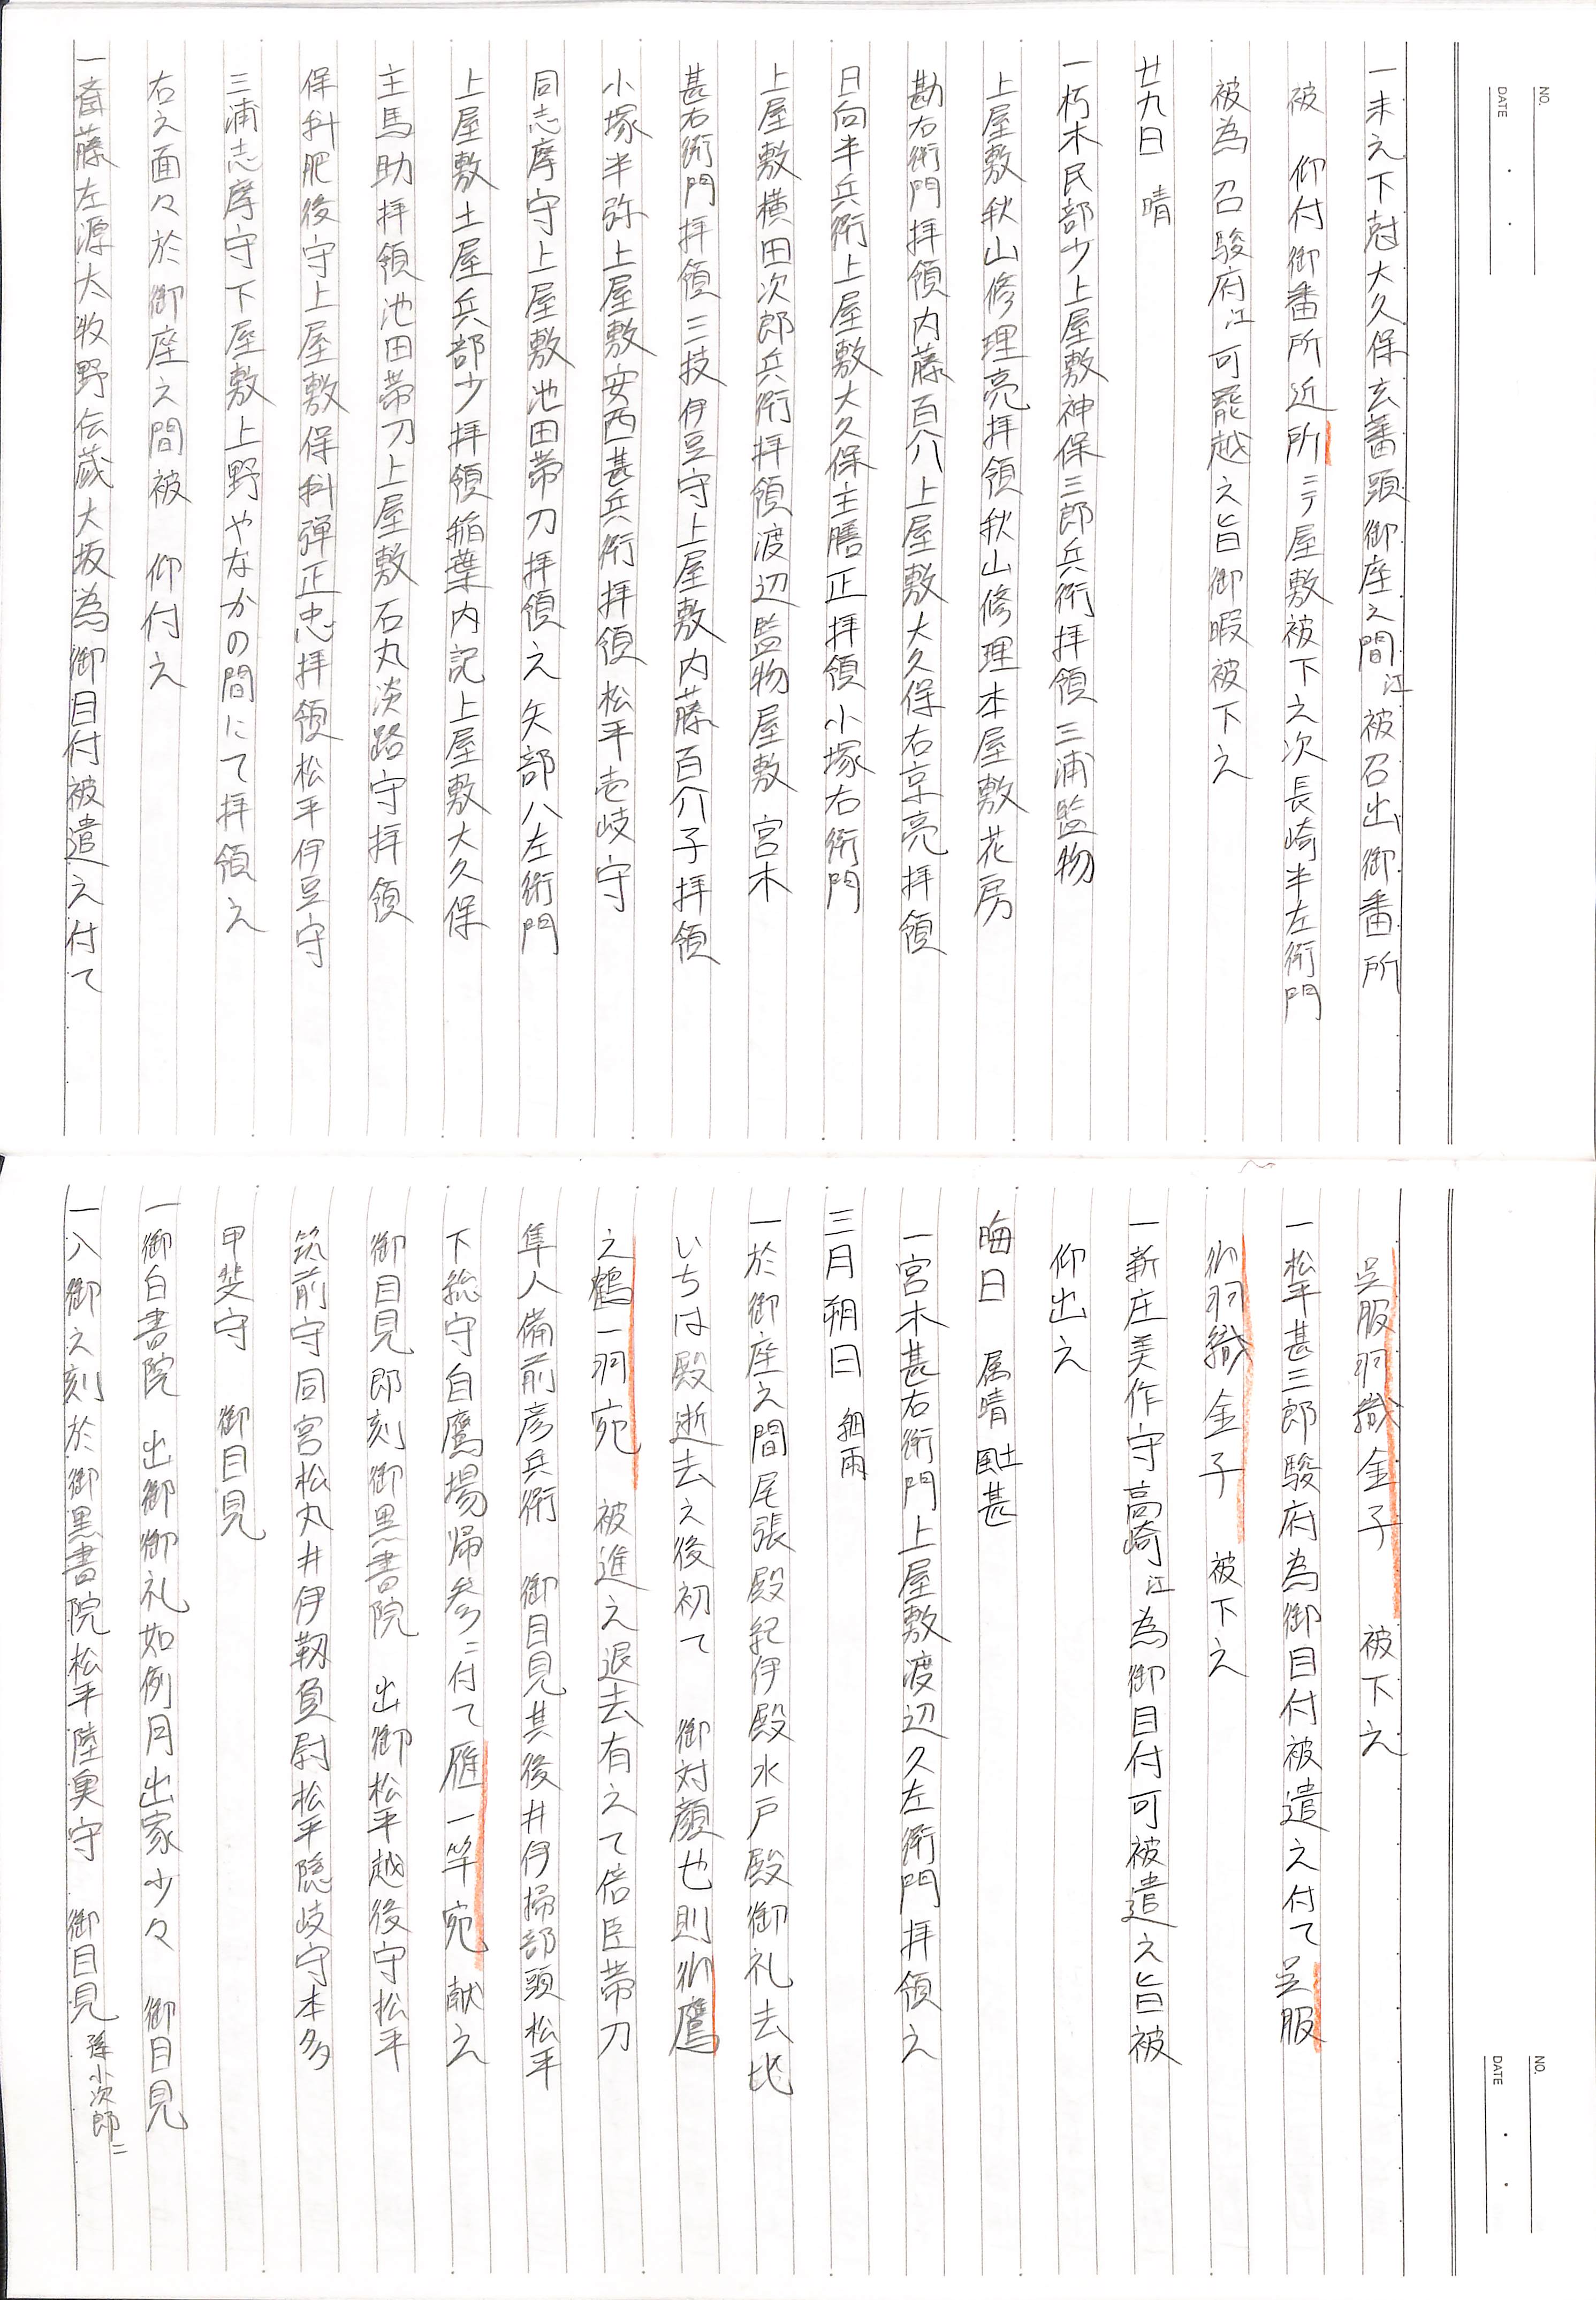 NO.
DATE
一未之下尅大久保玄蕃頭御座之間江被召出御番所
被　仰付御番所近所ニテ屋敷被下之次長崎半左衛門
被為　召駿府江可罷越之旨御暇被下之
廿九日　晴
一朽木民部少上屋敷神保三郎兵衛拝領三浦監物
上屋敷秋山修理亮拝領秋山修理本屋敷花房
勘右衛門拝領内藤百介上屋敷大久保右京亮拝領
日向半兵衛上屋敷大久保主膳正拝領小塚右衛門
上屋敷横田次郎兵衛拝領渡辺監物屋敷宮木
甚右衛門拝領三枝伊豆守上屋敷内藤百介子拝領
小塚半弥上屋敷安西甚兵衛拝領松平壱岐守
同志摩守上屋敷池田帯刀拝領之矢部八左衛門
上屋敷土屋兵部少拝領稲葉内記上屋敷大久保
主馬助拝領池田帯刀上屋敷石丸淡路守拝領
保科肥後守上屋敷保科弾正忠拝領松平伊豆守
三浦志摩守下屋敷上野やなかの間にて拝領之
右之面々於御座之間被　仰付之
一斎藤左源太牧野伝蔵大坂為御目付被遣之付て
NO.
DATE
呉服羽織金子　被下之
一松平甚三郎駿府為御目付被遣之付て呉服
御羽織金子　被下之
一新庄美作守高崎江為御目付可被遣之旨被
仰出之
晦日　属晴　風土甚
一宮木甚右衛門上屋敷渡辺久左衛門拝領之
三月朔日　細雨
一於御座之間尾張殿紀伊殿水戸殿御礼去比
いちは殿逝去之後初て　御対顔也則御鷹
之鶴一羽宛　被進之退去有之て倍臣帯刀
隼人備前彦兵衛　御目見其後井伊掃部頭松平
下総守自鷹場帰参ニ付て雁一竿宛　献之
御目見即刻御黒書院　出御松平越後守松平
筑前守同宮松丸井伊靱負尉松平隠岐守本多
甲斐守　御目見
一御白書院　出御御礼如例月出家少々　御目見
一入御之刻於御黒書院松平陸奥守　御目見孫小次郎ニ